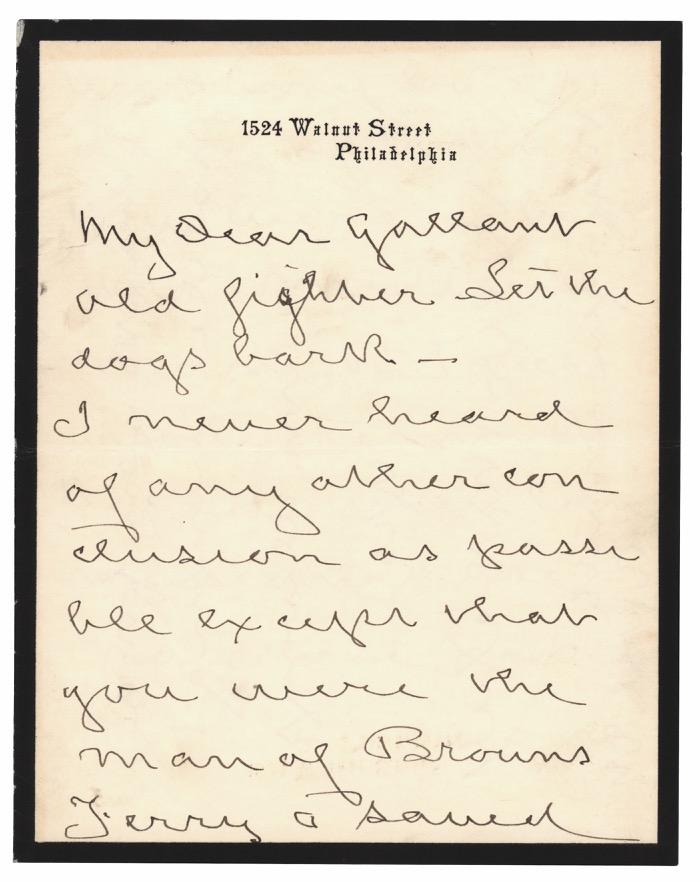 1524 Walnut Street
Philadelphia
My Dear Gallant
old fighter Let the
dogs bark —
I never heard
of any other con
clusion as possi
ble except that
you were the
man of Browns
Ferry & saved